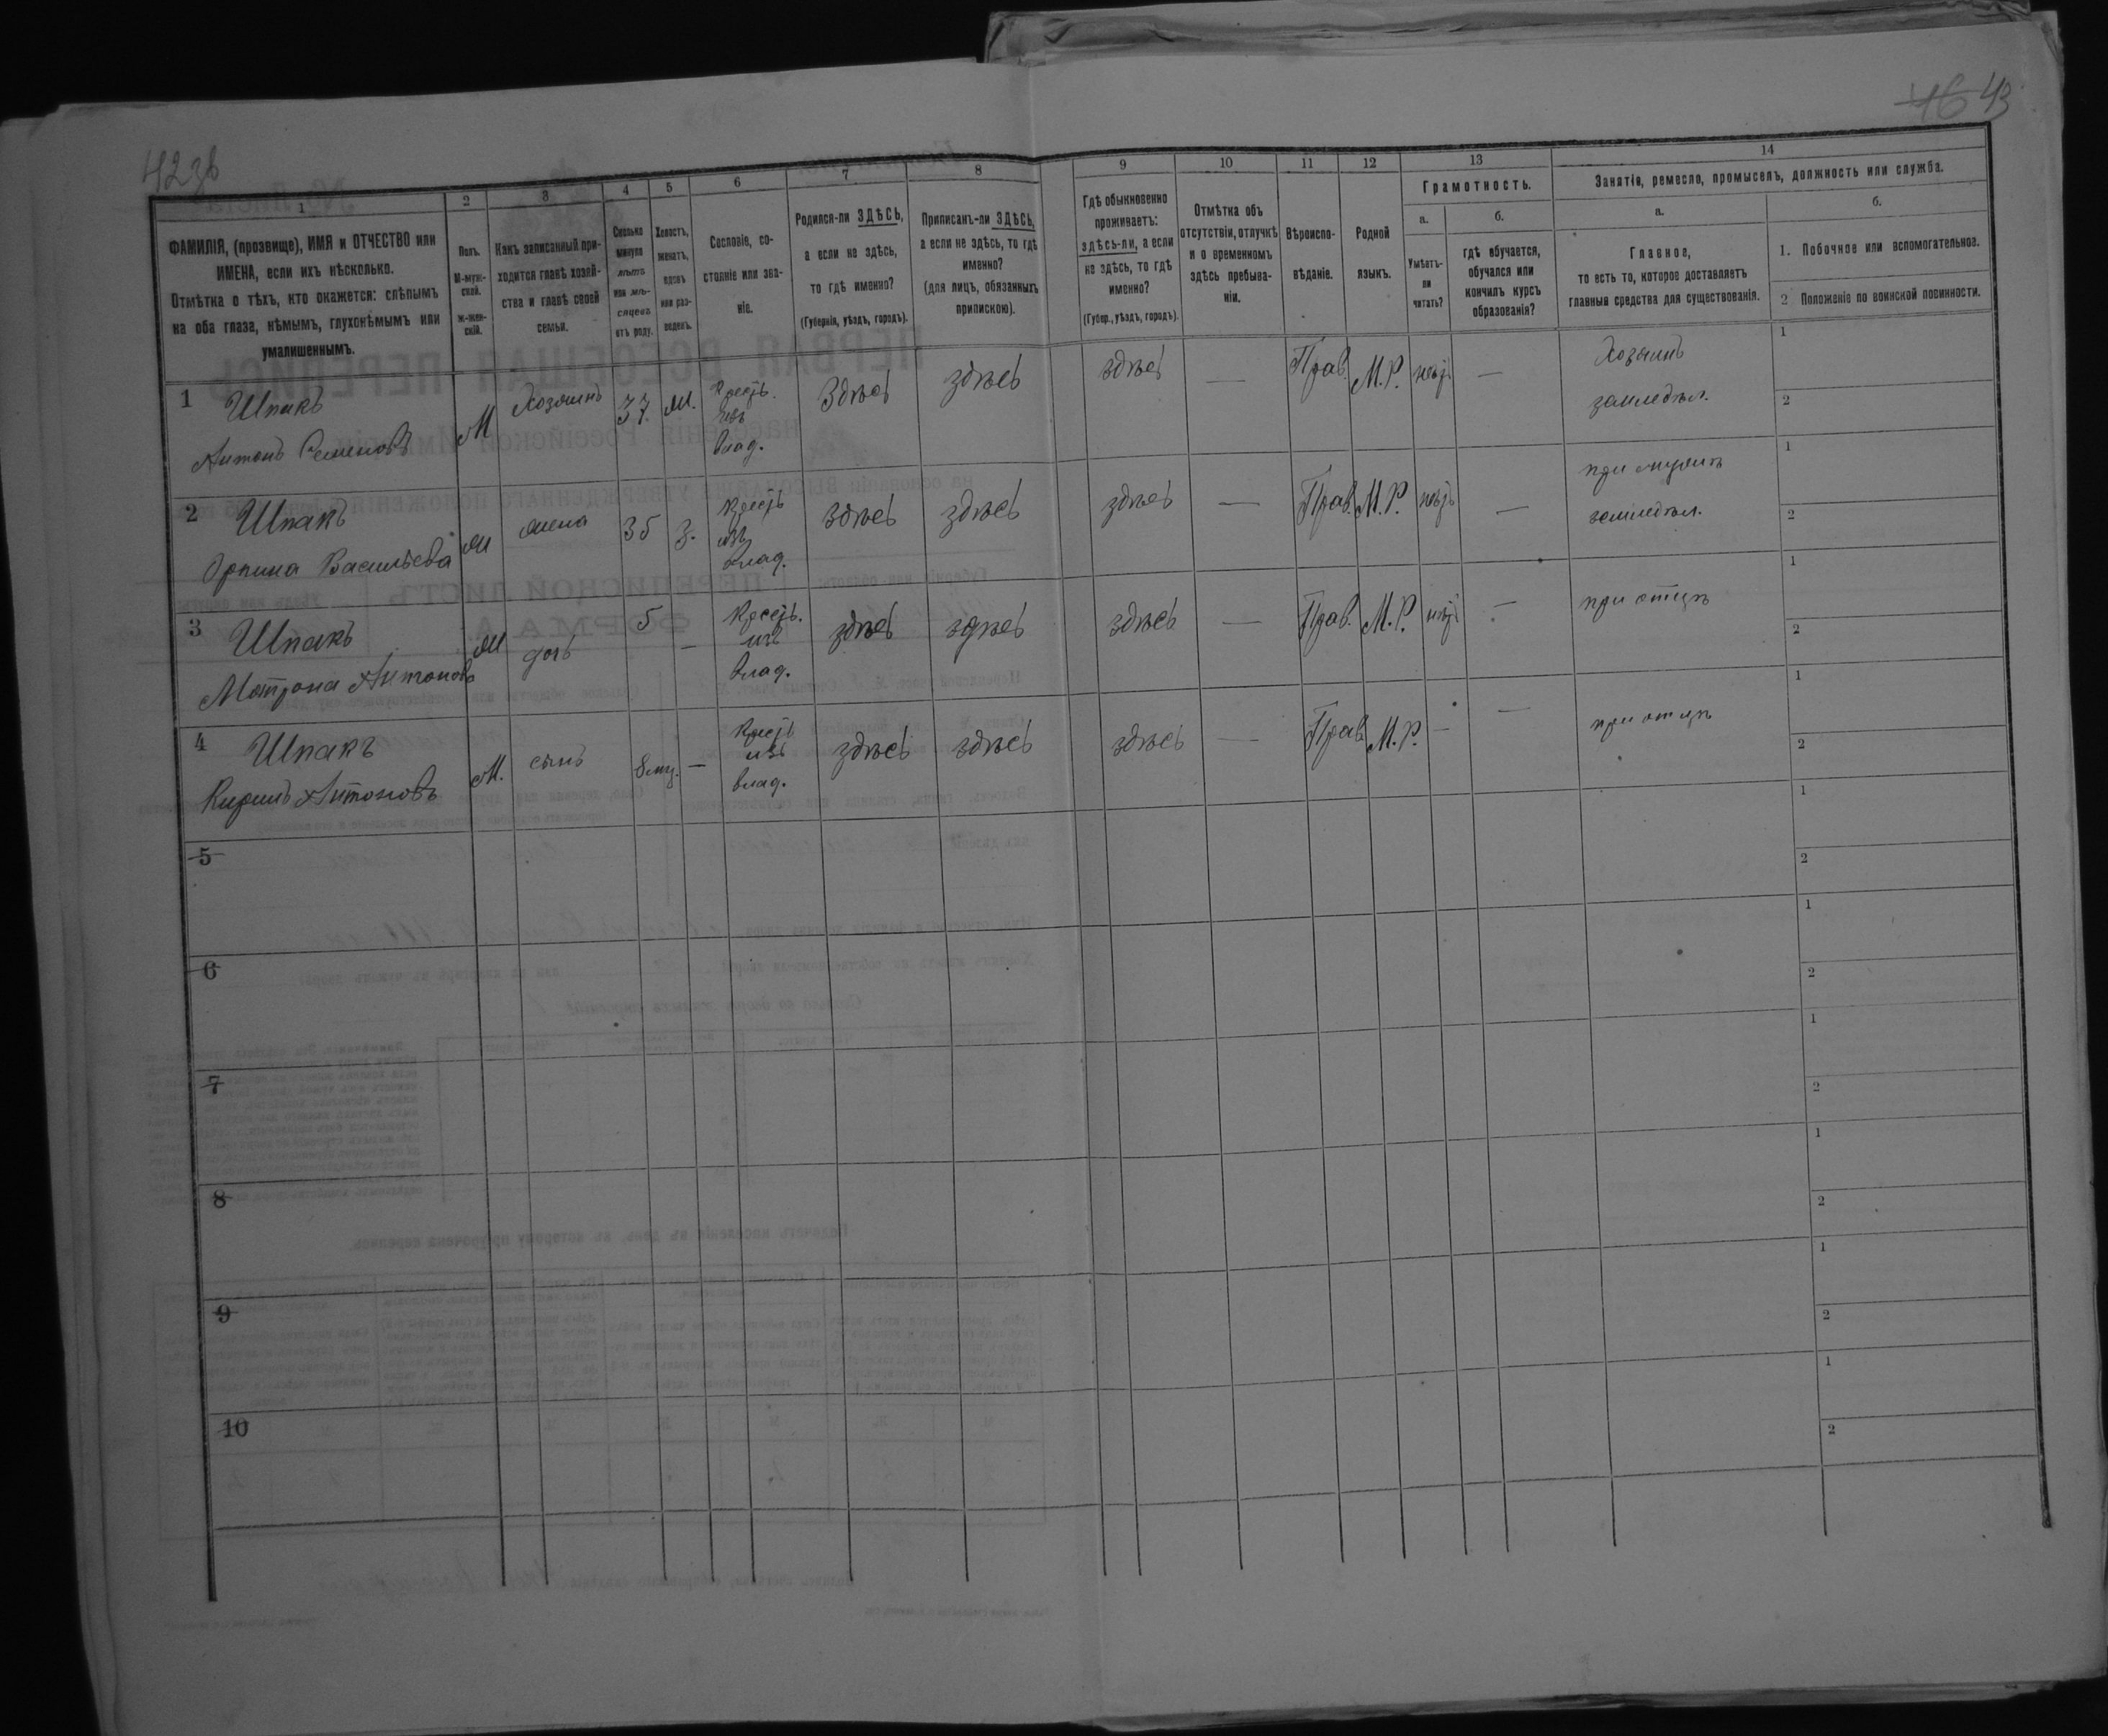 42 зв
46 43
1
2
3
4
5
6
7
8
9
10
11
12
13
14
ФАМИЛІЯ, (прозвище), ИМЯ и ОТЧЕСТВО или
ИМЕНА, если ихъ нѣсколько.
Отмѣтка о тѣхъ, кто окажется: слѣпымъ
на оба глаза, нѣмымъ, глухонѣмымъ или
умалишеннымъ.
Полъ.
М-муж-
ской.
Ж-жен-
скій.
Какъ записанный при-
ходится главѣ хозяй-
ства и главѣ своей
семьи.
Сколько
минуло
лѣтъ
или мѣ-
сяцевъ
отъ роду.
Холостъ,
женатъ,
вдовъ
или раз-
веденъ.
Сословіе, со-
стояніе или зва-
ніе.
Родился-ли ЗДѢСЬ,
а если не здѣсь,
то гдѣ именно?
(Губернія, уѣздъ, городъ).
Приписанъ-ли ЗДѢСЬ,
а если не здѣсь, то гдѣ
именно?
(для лицъ, обязанныхъ
припискою).
Гдѣ обыкновенно
проживаетъ:
здѣсь-ли, а если
не здѣсь, то гдѣ
именно?
(Губер., уѣздъ, городъ).
Отмѣтка объ
отсутствіи, отлучкѣ
и о временномъ
здѣсь пребыва-
ніи.
Вѣроиспо-
вѣданіе.
Родной
языкъ.
Грамотность.
а.
Умѣетъ-
ли
читать?
б.
гдѣ обучается,
обучался или
кончилъ курсъ
образованія?
Занятіе, ремесло, промыселъ, должность или служба.
а.
Главное,
то есть то, которое доставляетъ
главныя средства для существованія.
б.
1. Побочное или вспомогательное.
2 Положеніе по воинской повинности.
1 Шпакъ
Антонъ Семеновъ
М
Хозяинъ
37.
ж.
Крест.
изъ
влад.
Здѣсь
здѣсь
здѣсь
—
Прав.
М.Р.
нѣтъ
—
Хозяинъ
земледѣл.
1
2
2 Шпакъ
Орпина Васильева
Ж
жена
35
з.
Крест
изъ
влад.
здѣсь
здѣсь
здѣсь
—
Прав.
М.Р.
нѣтъ
—
при мужѣ
земледѣл.
1
2
3 Шпакъ
Мотрона Антонова
Ж
дочь
5
—
Крест.
изъ
влад.
здѣсь
здѣсь
здѣсь
—
Прав.
М.Р.
нѣтъ
—
при отцѣ
1
2
4 Шпакъ
Кирилъ Антоновъ
М.
сынъ
8 мц.
—
Крест
изъ
влад.
здѣсь
здѣсь
здѣсь
—
Прав
М.Р.
—
—
при отцѣ
1
2
5
1
2
6
1
2
7
1
2
8
1
2
9
1
2
10
1
2